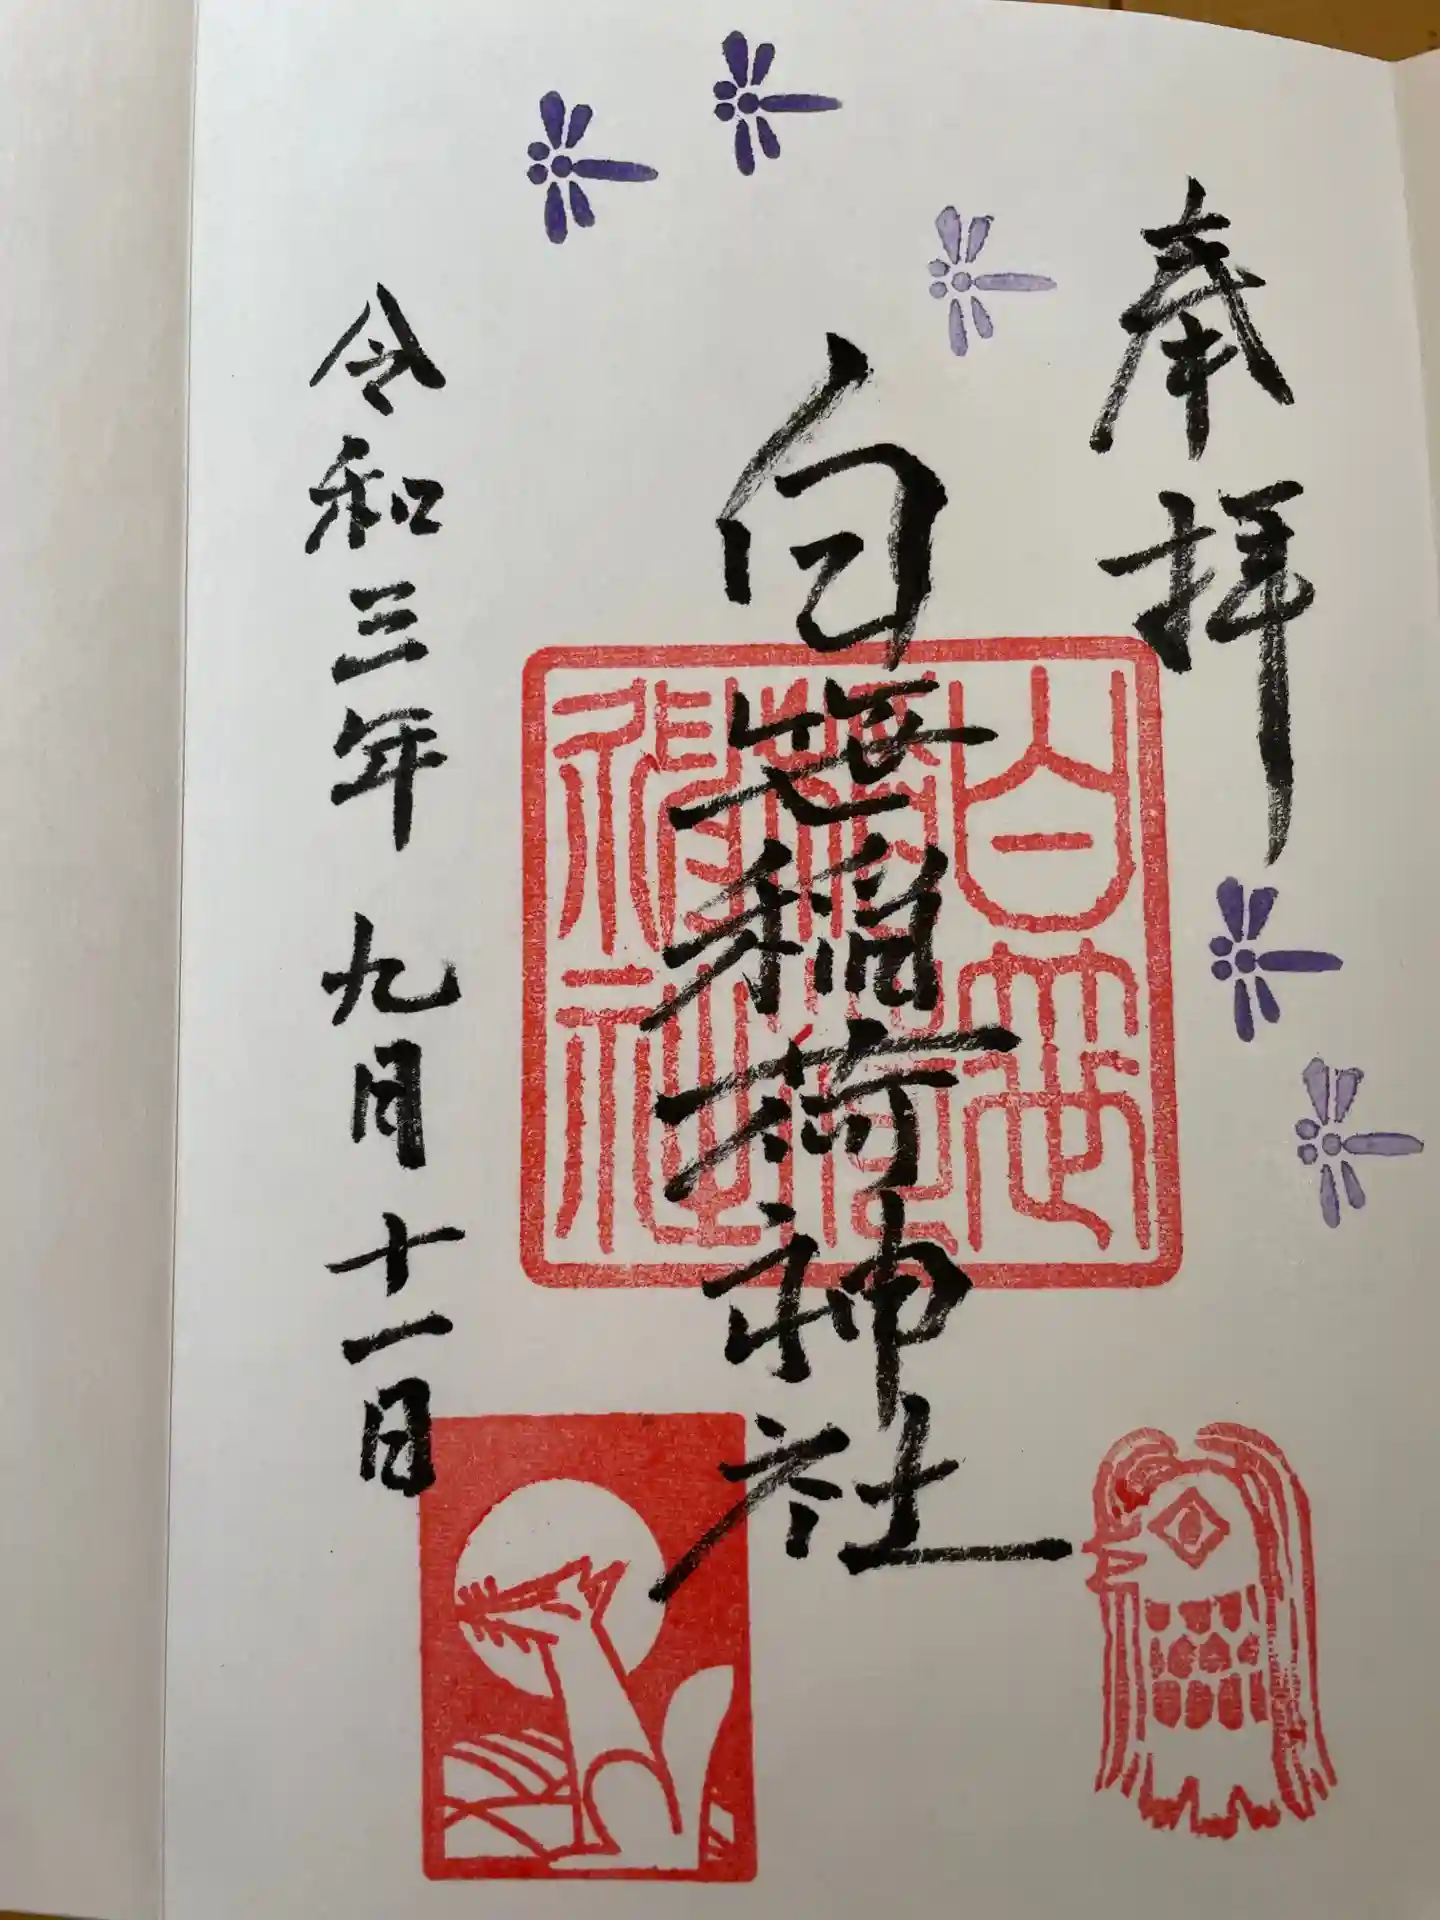 奉拝
白笹稲荷神社
白笹
稲荷
神社
令和三年 九月十一日